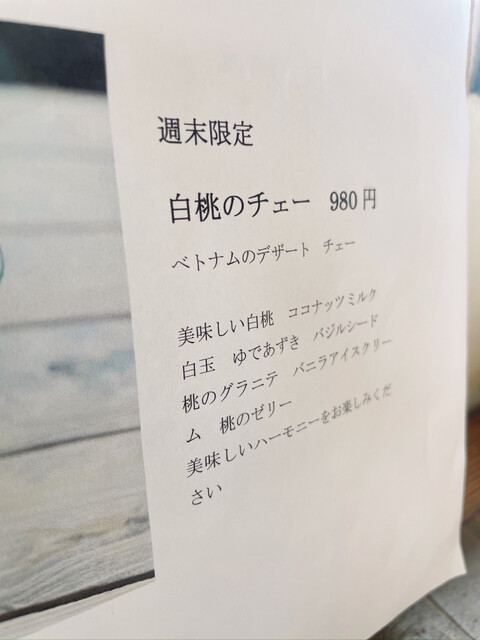 週末限定
白桃のチェー　980円
ベトナムのデザート　チェー
美味しい白桃　ココナッツミルク
白玉　ゆであずき　バジルシード
桃のグラニテ　バニラアイスクリー
ム　桃のゼリー
美味しいハーモニーをお楽しみくだ
さい